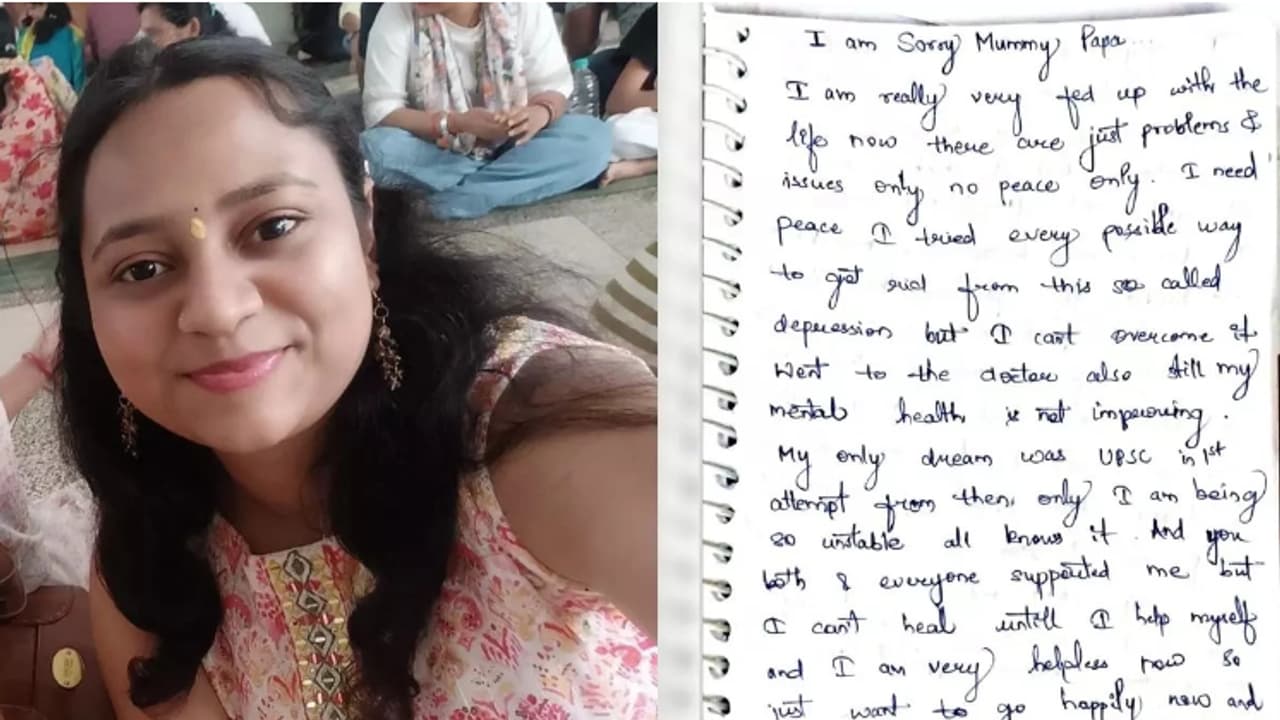 I am Sorry Mummy Papa...
I am really very fed up with the
life now there are just problems &
issues only no peace only. I need
peace I tried every possible way
to get rid from this so called
depression but I can't overcome it
Went to the doctor also still my
mental health is not improving.
My only dream was UPSC in 1st
attempt from then only I am being
so unstable all knows it. And you
both & everyone supported me but
I can't heal untill I help myself
and I am very helpless now so
just want to go happily now and